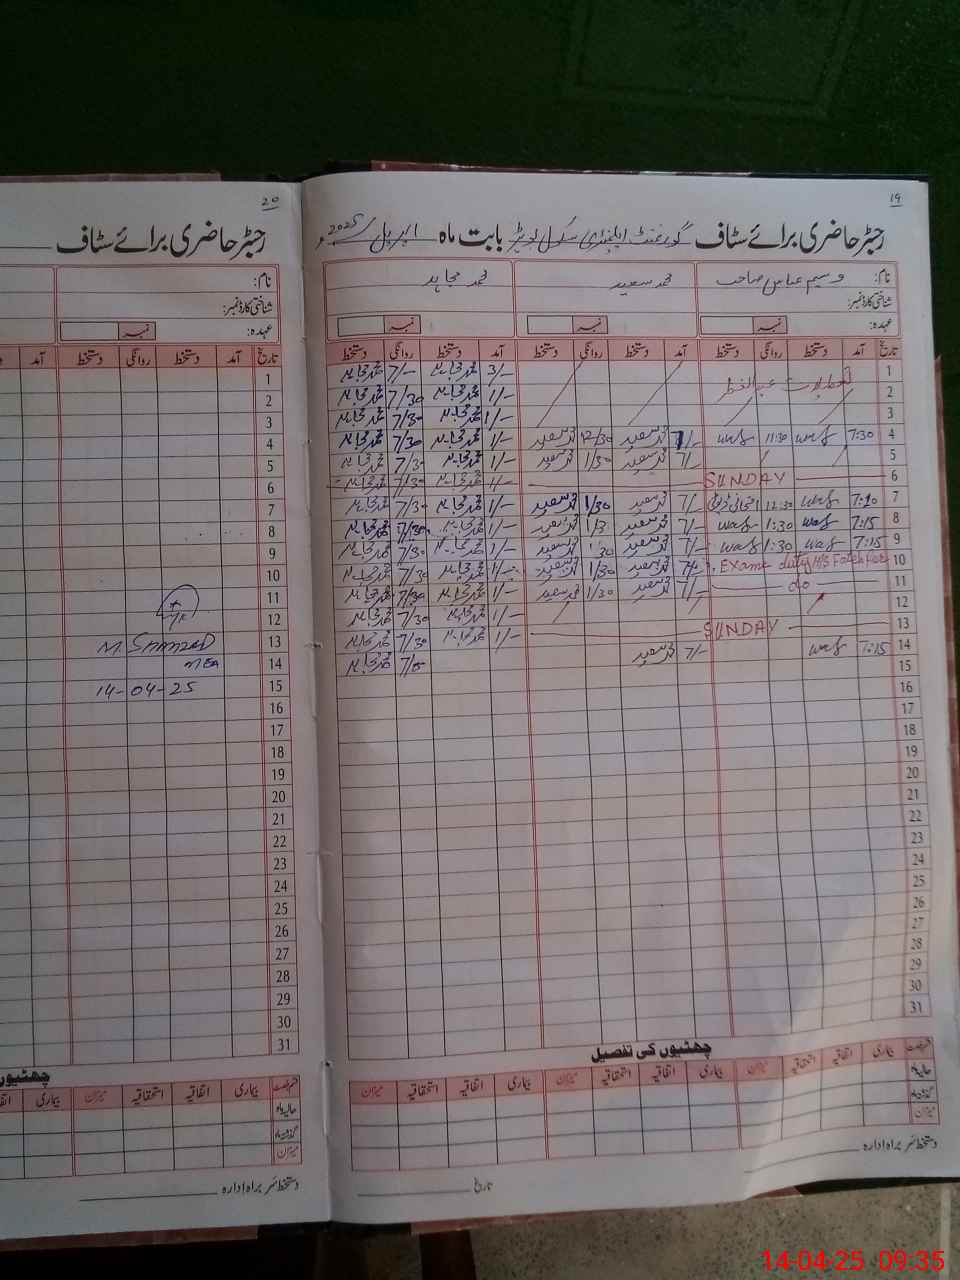 19
رجسٹر حاضری برائے سٹاف گورنمنٹ ایلیمنٹری سکول بابت ماہ اپریل 2025ء
نام: وسیم عباس صاحب محمد سعید محمد مجاہد
شناختی کارڈ نمبر:
عہدہ: نمبر نمبر نمبر
تاریخ آمد دستخط روانگی دستخط آمد دستخط روانگی دستخط آمد دستخط روانگی دستخط
1 3/- محمد مجاہد 7/- محمد مجاہد
2 تعطیلات عید الفطر 1/- محمد مجاہد 7/30 محمد مجاہد
3 1/- محمد مجاہد 7/30 محمد مجاہد
4 7:30 11:30 7/- محمد سعید 12/30 محمد سعید 1/- محمد مجاہد 7/30 محمد مجاہد
5 7/- محمد سعید 1/30 محمد سعید 1/- محمد مجاہد 7/30 محمد مجاہد
6 SUNDAY 1/- محمد مجاہد 7/30 محمد مجاہد
7 12:30 7/- محمد سعید 1/30 محمد سعید 1/- محمد مجاہد 7/30 محمد مجاہد
8 7:15 1:30 7/- محمد سعید محمد سعید 1/- محمد مجاہد 7/30 محمد مجاہد
9 7:15 1:30 7/- محمد سعید 1:30 محمد سعید 1/- محمد مجاہد 7/30 محمد مجاہد
10 Exame duty H/S Fateh 7/- محمد سعید 1/30 محمد سعید 1/- محمد مجاہد 7/30 محمد مجاہد
11 do 7/- محمد سعید 1/30 محمد سعید 1/- محمد مجاہد 7/30 محمد مجاہد
12 1/- محمد مجاہد 7/30 محمد مجاہد
13 SUNDAY 1/- محمد مجاہد 7/30 محمد مجاہد
14 7:15 7/- محمد سعید محمد مجاہد
15
16
17
18
19
20
21
22
23
24
25
26
27
28
29
30
31
چھٹیوں کی تفصیل
قسم رخصت بیماری اتفاقیہ استحقاقیہ میزان بیماری اتفاقیہ استحقاقیہ میزان بیماری اتفاقیہ استحقاقیہ میزان
حالیہ ماہ
گذشتہ ماہ
میزان
دستخط سربراہ ادارہ
تاریخ
20
رجسٹر حاضری برائے سٹاف
نام:
شناختی کارڈ نمبر:
عہدہ: نمبر
تاریخ آمد دستخط روانگی دستخط آمد
1
2
3
4
5
6
7
8
9
10
11
12
13 M. Shahzad
14 MEA
15 14-04-25
16
17
18
19
20
21
22
23
24
25
26
27
28
29
30
31
چھٹیوں
قسم رخصت بیماری اتفاقیہ استحقاقیہ میزان بیماری
حالیہ ماہ
گذشتہ ماہ
میزان
دستخط سربراہ ادارہ
14-04-25 09:35